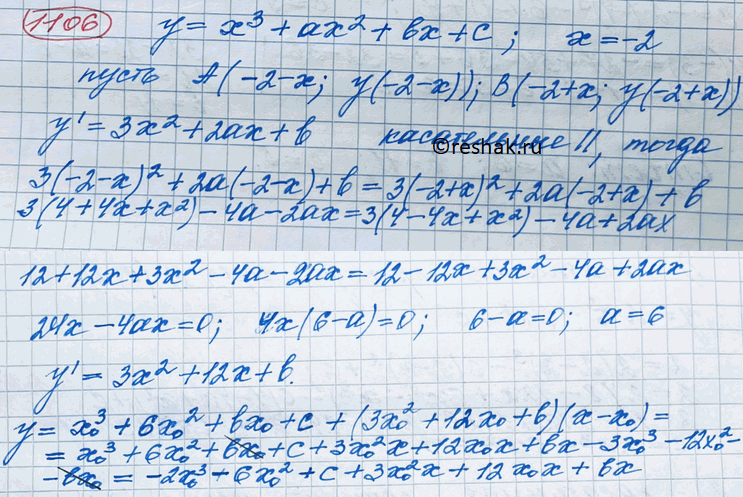 1106 y = x³ + ax² + bx + c ; x = -2
пусть A(-2-x; y(-2-x)); B(-2+x; y(-2+x))
y' = 3x² + 2ax + b касательные ||, тогда
©reshak.ru
3(-2-x)² + 2a(-2-x) + b = 3(-2+x)² + 2a(-2+x) + b
3(4+4x+x²) - 4a - 2ax = 3(4-4x+x²) - 4a + 2ax
12+12x+3x² - 4a - 2ax = 12 - 12x + 3x² - 4a + 2ax
24x - 4ax = 0; 4x(6-a) = 0; 6-a = 0; a = 6
y' = 3x² + 12x + b.
y = x₀³ + 6x₀² + bx₀ + c + (3x₀² + 12x₀ + b)(x - x₀) =
= x₀³ + 6x₀² + bx₀ + c + 3x₀²x + 12x₀x + bx - 3x₀³ - 12x₀² -
- bx₀ = -2x₀³ + 6x₀² + c + 3x₀²x + 12x₀x + bx